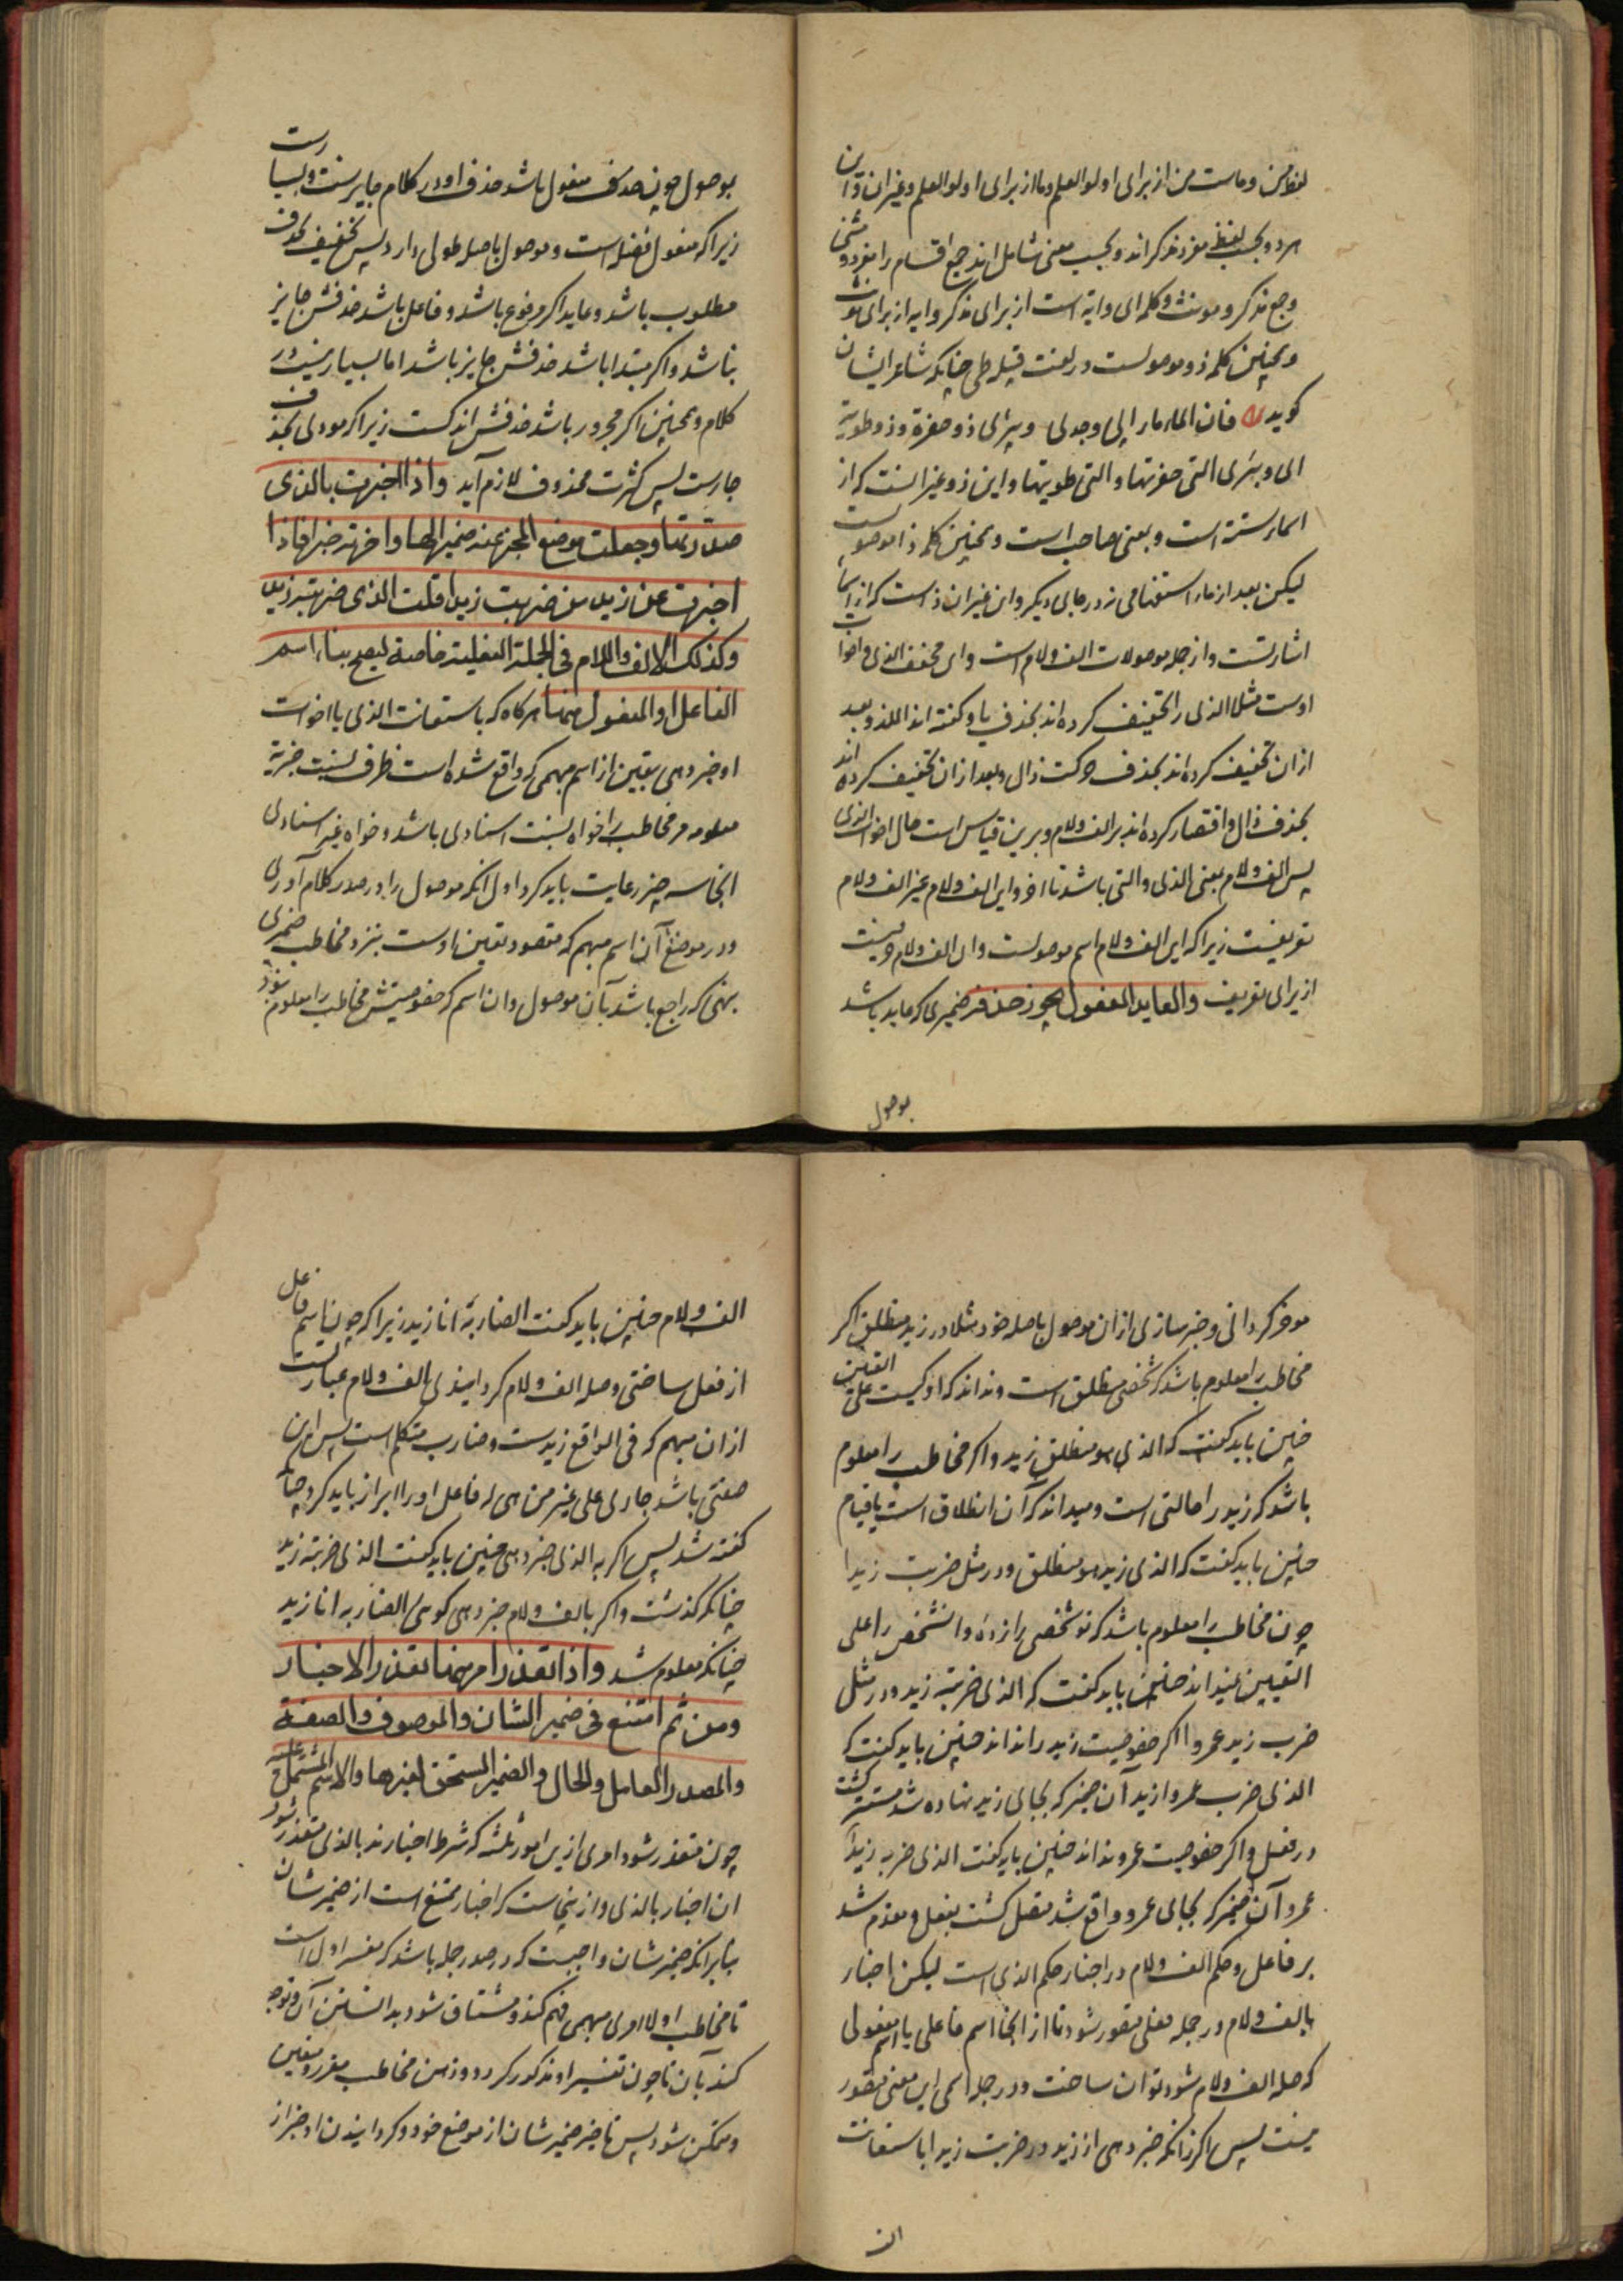 لفظ من و ماست من از برای اولو العلم و ما از برای اولو العلم و غیر ان و این
هر دو بحسب لفظ مفرد مذکراند و بحسب معنی شامل اند جمیع اقسام را مفرد و مثنی
و جمع مذکر و مونث و کلمه ای و ایة است از برای مذکر و ایه از برای مونث
و همچنین کلمه ذو موصولست در لغت قبیله طی چنانکه شاعر ایشان
کوید فان الماء ماء ابی وجدی وبئری ذو حفرت وذو طویت
ای وبئری التی حفرتها والتی طویتها و این ذو غیر انست که از
اسماء ستة است و بمعنی صاحب است و همچنین کلمه ذا موصولست
لیکن بعد از ماء استفهامی نزد رجالی دیکر و این غیر ان ذا است که از اسماء
اشارتست و از جمله موصولات الف و لام است و ای مخفف الذی و اخوات
اوست مثلا الذی را تخفیف کرده اند بحذف یا و کفته اند اللذ و بعد
از ان تخفیف کرده اند بحذف حرکت ذال و بعد از ان تخفیف کرده اند
بحذف ذال و اقتصار کرده اند بر الف و لام و برین قیاس است حال اخوات الذی
پس الف و لام بمعنی الذی و التی باشد تا اخر و این الف و لام غیر الف و لام
تعریفست زیرا که این الف و لام اسم موصولست و ان الف و لام حرفیست
از برای تعریف والعاید المفعول یجوز حذفه ضمیری که عاید باشد
موصول
بموصول چون مفعول باشد حذف او در کلام جایزست و بسیارست
زیرا که مفعول فضله است و موصول باصله طولی دارد پس تخفیف بحذف
مطلوب باشد و عاید اکر مرفوع باشد و فاعل باشد حذفش جایز
نباشد و اکر مبتدا باشد حذفش جایز باشد اما بسیار نیست در
کلام و همچنین اکر مجرور باشد حذفش اندکست زیرا که مودی بحذف
جارست پس کثرت محذوف لازم آید واذا اخبرت بالذی
صدرتها وجعلت موضع المخبر عنه ضمیرا لها واخرته خبرا فاذا
اخبرت عن زید من ضربت زیدا قلت الذی ضربته زید
وکذلک الالف واللام فی الجملة الفعلیة خاصة لیصح بناء اسم
الفاعل او المفعول منها هرکاه که باستعانت الذی یا اخوات
او خبر دهی بتعیین از اسم مبهمی که واقع شده است طرف نسبت خبریه
معلومه مر مخاطب را خواه نسبت اسنادی باشد و خواه غیر اسنادی
انجا سه چیز رعایت باید کرد اول انکه موصول را در صدر کلام آوری
و در موضع آن اسم مبهم که مقصود تعیین اوست بنزد مخاطب ضمیری
بنهی که راجع باشد بآن موصول و ان اسم که خصوصیتش مخاطب را معلوم نبود
موخر کردانی و خبر سازی از ان موصول باصله خود مثلا در زید منطلق اکر
مخاطب را معلوم باشد که شخصی منطلق است و نداند که او کیست علی التعیین
چنین باید کفت که الذی هو منطلق زید و اکر مخاطب را معلوم
باشد که زید را حالتی است و میداند که آن انطلاق است یا قیام
چنین باید کفت که الذی زید هو منطلق و در مثل ضربت زیدا
چون مخاطب را معلوم باشد که تو شخصی را زدهٔ و ان شخص را علی
التعیین نمیداند چنین باید کفت که الذی ضربته زید و در مثل
ضرب زید عمروا اکر خصوصیت زید را نداند چنین باید کفت که
الذی ضرب عمروا زید آن ضمیر که بجای زید نهاده شد مستتر کشت
در فعل و اکر خصوصیت عمرو نداند چنین باید کفت الذی ضربه زید
عمرو آن ضمیر که بجای عمرو واقع شد متصل کشت بفعل و مقدم شد
بر فاعل و حکم الف و لام در اخبار حکم الذی است لیکن اخبار
بالف و لام در جمله فعلی متصور شود تا از انجا اسم فاعلی یا اسم مفعولی
که صله الف و لام شود توان ساخت و در جمله اسمی این معنی متصور
نیست پس اکر زانکه خبر دهی از زید در ضربت زیدا باستعانت
الف
الف و لام چنین باید کفت الضاربه انا زید زیرا که چون اسم فاعل
از فعل ساختی و صله الف و لام کردانیدی الف و لام عبارتست
از ان مبهم که فی الواقع زیدست و ضارب متکلم است پس این
صفتی باشد جاری علی غیر من هی له فاعل او را ابراز باید کرد چنانکه
کفته شد پس اکر به الذی خبر دهی چنین باید کفت الذی ضربته زید
چنانکه کذشت و اکر بالف و لام خبر دهی کویی الضاربه انا زید
چنانکه معلوم شد واذا تعذر امر منها تعذر الاخبار
ومن ثم امتنع فی ضمیر الشان والموصوف والصفة
والمصدر العامل والحال والضمیر المستحق لغیرها والاسم المشتمل علیه
چون متعذر شود امری ازین امور ثلثه که شرط اخبارند بالذی متعذر شود
ان اخبار بالذی و ازینجاست که اخبار ممتنع است از ضمیر شان
بنابر انکه ضمیر شان واجبست که در صدر جمله باشد که مفسر اوست
تا مخاطب اولا امری مبهمی فهم کند و مشتاق شود بدانستن آن و توجه
کند بآن تا چون تفسیر او مذکور کردد در ذهن مخاطب مقرر و متعین
و متمکن شود پس تاخیر ضمیر شان از موضع خود و کردانیدن او خبر از